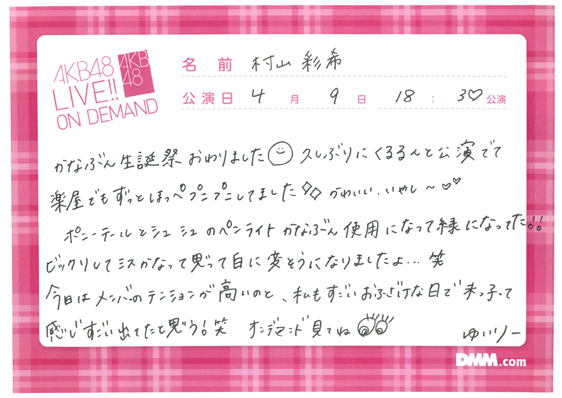 AKB48
LIVE!!
ON DEMAND
AKB
48
名前 村山彩希
公演日 4月9日 18:30公演
かなぶん生誕祭おわりました 久しぶりにくるるんと公演でて
楽屋でもずっとほっぺプニプニしてました かわいい、いやし〜
ポニーテールとシュシュのペンライトかなぶん使用になって緑になってた!!
ビックリしてミスかなって思って白に変そうになりましたよ…笑
今日はメンバーのテンションが高いのと、私もすごいおふざけな日で末っ子って
感じすごい出てたと思う!笑 オンデマンド見てね
ゆいりー
DMM.com